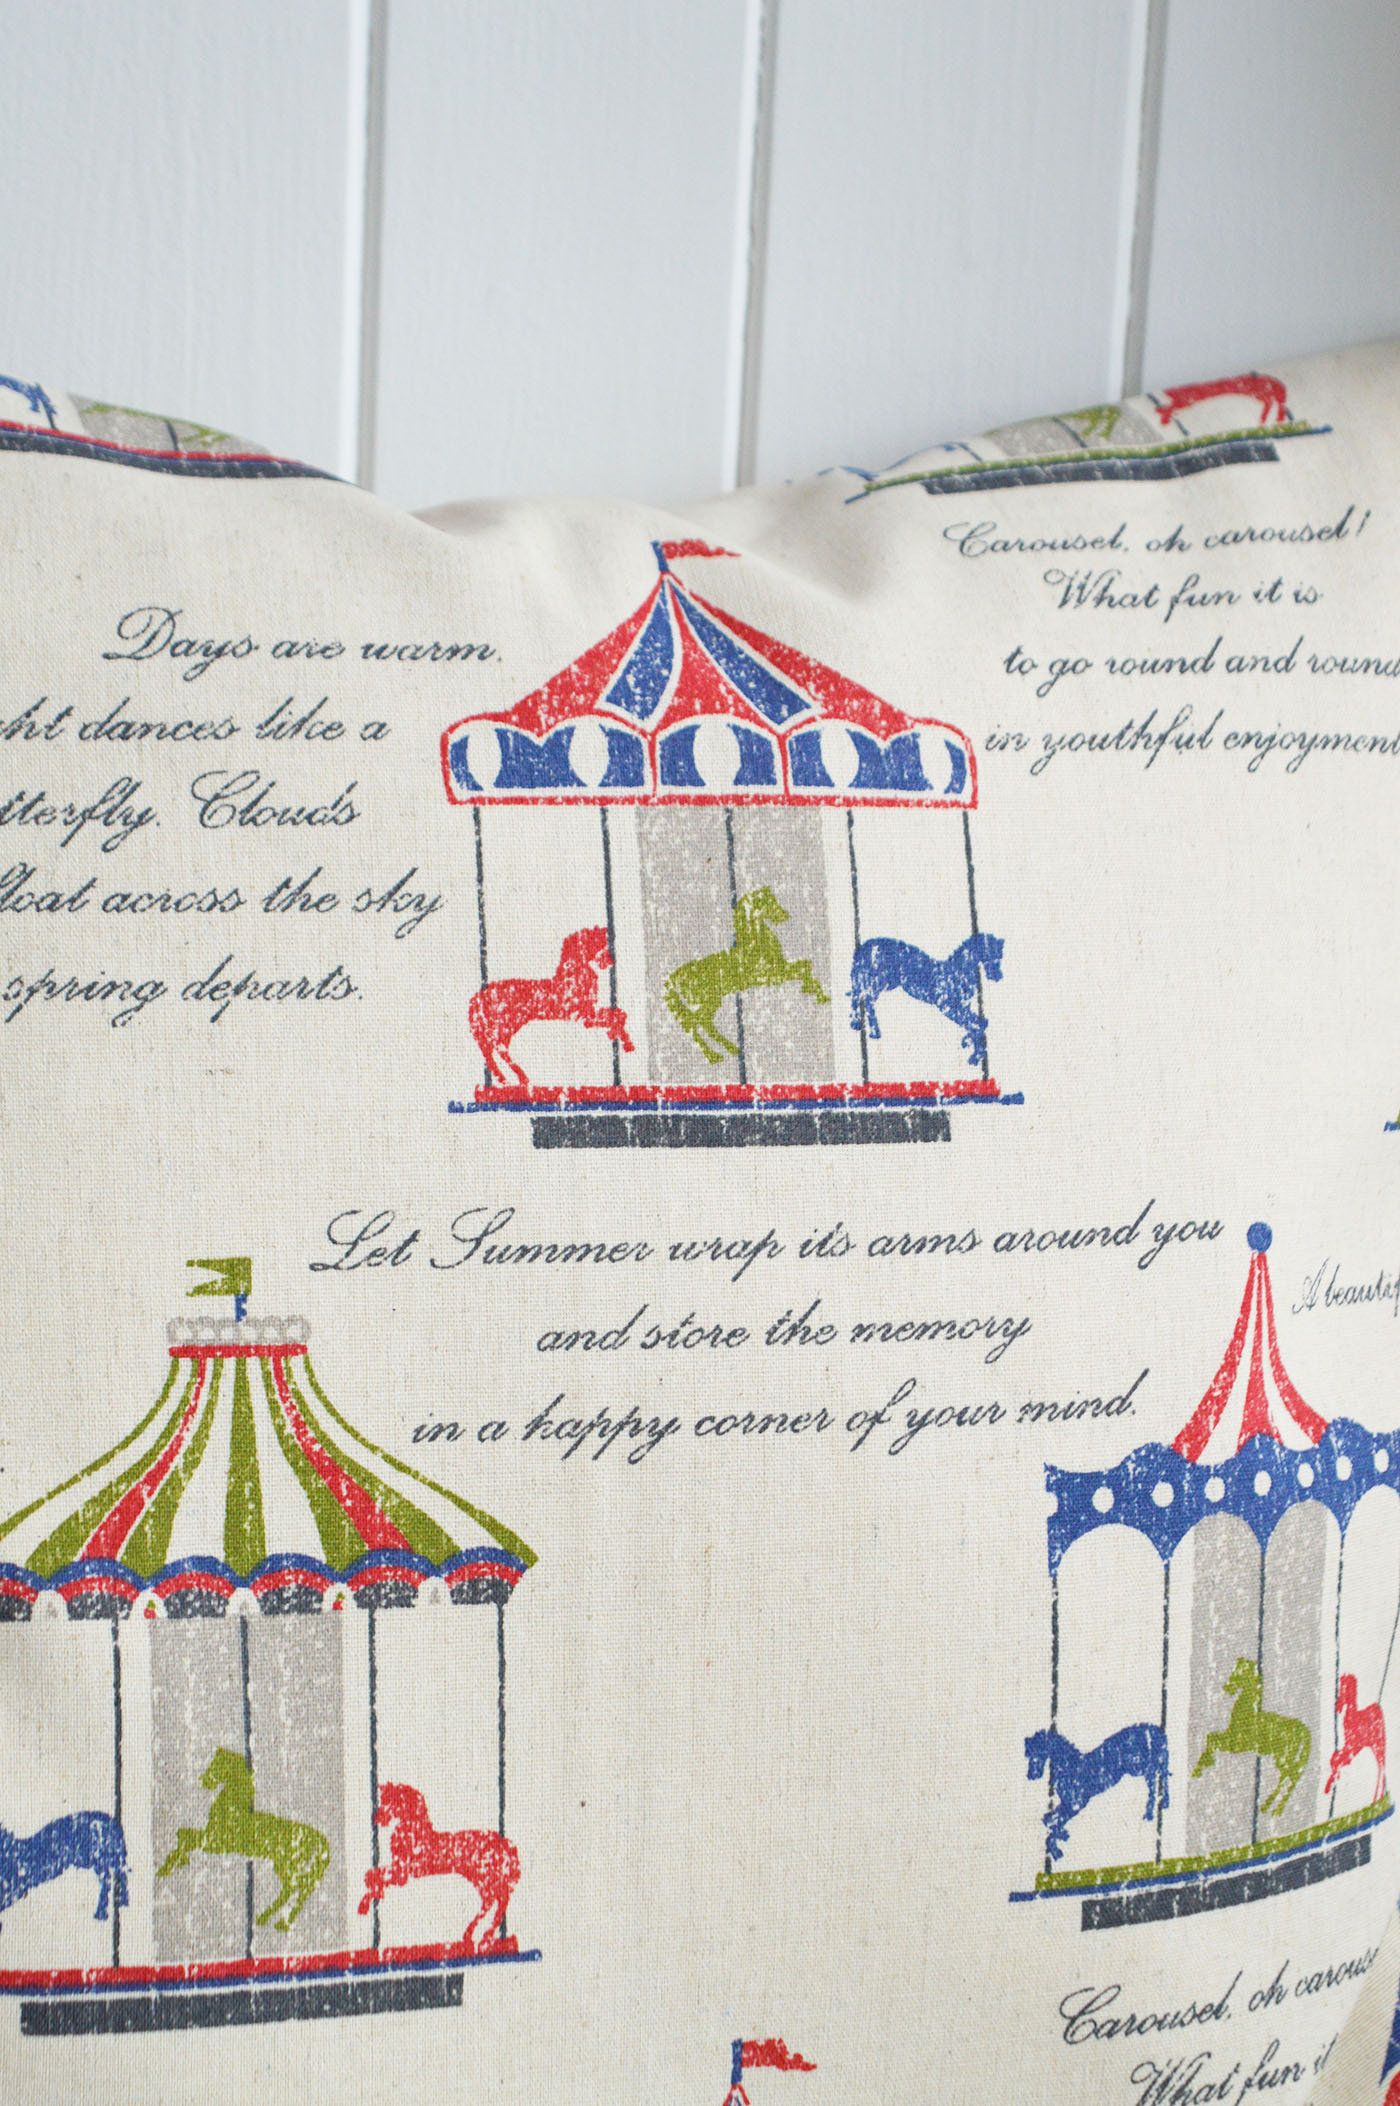 Carousel, oh carousel!
What fun it is
to go round and round
in youthful enjoyment
Days are warm.
dances like a
Clouds
across the sky
spring departs.
Let Summer wrap its arms around you
and store the memory
in a happy corner of your mind.
A
Carousel, oh
What fun